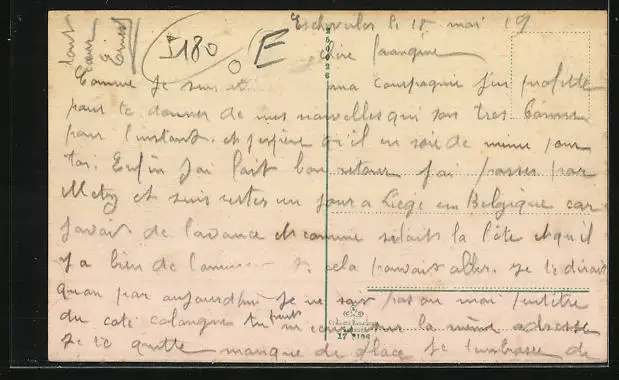 Eschweiler le 18 mai 19
Chère
5180 E
tout
à
Comme je suis ma compagnie j'en profite
pour te donner de mes nouvelles qui son tres bonnes
pour l'instant. et j'espère qu'il en soie de meme pour
toi. Enfin j'ai fait bon retour j'ai passer par
Metz et suis rester un jour a Liège en Belgique car
j'avait de l'avance et comme s'etait la fête et qu'il
y a bien de cela pouvait aller. je te dirait
quan par aujourdhui je ne sais pas ou moi peutètre
du coté calongue tu peut sur la même adresse
Je te quitte manque de place je t'embrasse de
17 5196